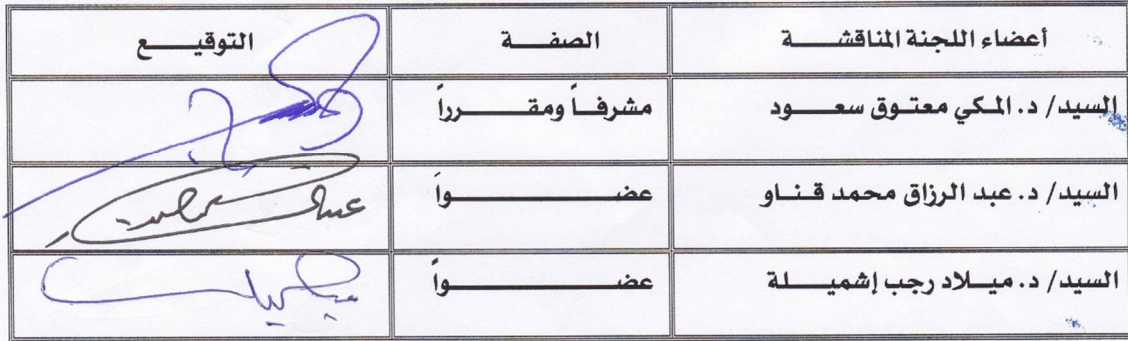 أعضاء اللجنة المناقشة الصفة التوقيع
السيد/ د. المكي معتوق سعود مشرفاً ومقرراً
السيد/ د. عبد الرزاق محمد قناو عضواً
السيد/ د. ميلاد رجب إشميلة عضواً